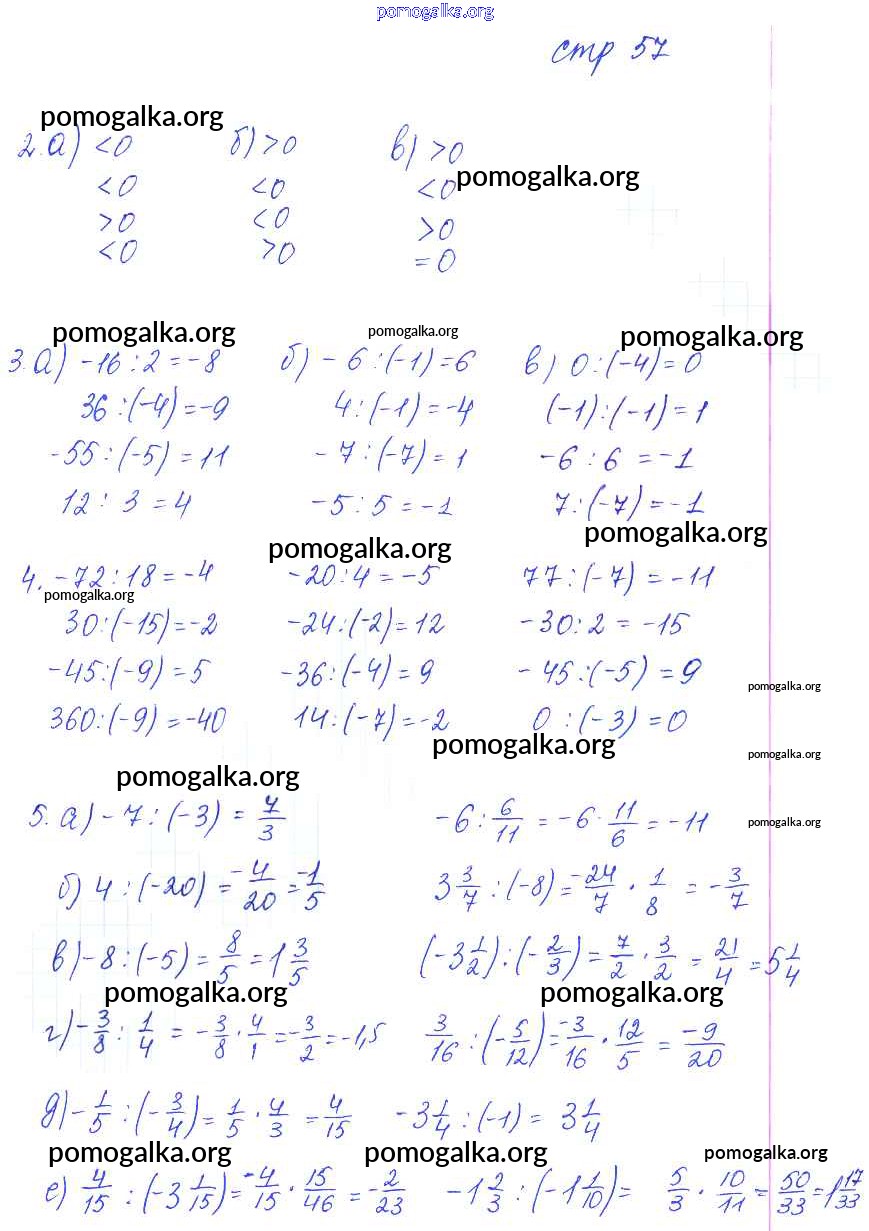 pomogalka.org
стр 57
pomogalka.org
2. а) <0 б) >0 в) >0
pomogalka.org
<0 <0 <0
>0 <0 >0
<0 >0 =0
pomogalka.org pomogalka.org pomogalka.org
3. а) -16 : 2 = -8 б) - 6 : (-1) = 6 в) 0 : (-4) = 0
36 : (-4) = -9 4 : (-1) = -4 (-1) : (-1) = 1
-55 : (-5) = 11 - 7 : (-7) = 1 -6 : 6 = -1
12 : 3 = 4 -5 : 5 = -1 7 : (-7) = -1
pomogalka.org pomogalka.org
4. -72 : 18 = -4 -20 : 4 = -5 77 : (-7) = -11
pomogalka.org
30 : (-15) = -2 -24 : (-2) = 12 -30 : 2 = -15
-45 : (-9) = 5 -36 : (-4) = 9 - 45 : (-5) = 9
pomogalka.org
360 : (-9) = -40 14 : (-7) = -2 0 : (-3) = 0
pomogalka.org pomogalka.org
pomogalka.org
5. а) - 7 : (-3) = 7/3 -6 : 6/11 = -6 · 11/6 = -11
pomogalka.org
б) 4 : (-20) = -4/20 = -1/5 3 3/7 : (-8) = -24/7 · 1/8 = -3/7
в) -8 : (-5) = 8/5 = 1 3/5 (-3 1/2) : (-2/3) = 7/2 · 3/2 = 21/4 = 5 1/4
pomogalka.org pomogalka.org
г) -3/8 : 1/4 = -3/8 · 4/1 = -3/2 = -1,5 3/16 : (-5/12) = -3/16 · 12/5 = -9/20
д) -1/5 : (-3/4) = 1/5 · 4/3 = 4/15 -3 1/4 : (-1) = 3 1/4
pomogalka.org pomogalka.org pomogalka.org
е) 4/15 : (-3 1/15) = -4/15 · 15/46 = -2/23 -1 2/3 : (-1 1/10) = 5/3 · 10/11 = 50/33 = 1 17/33